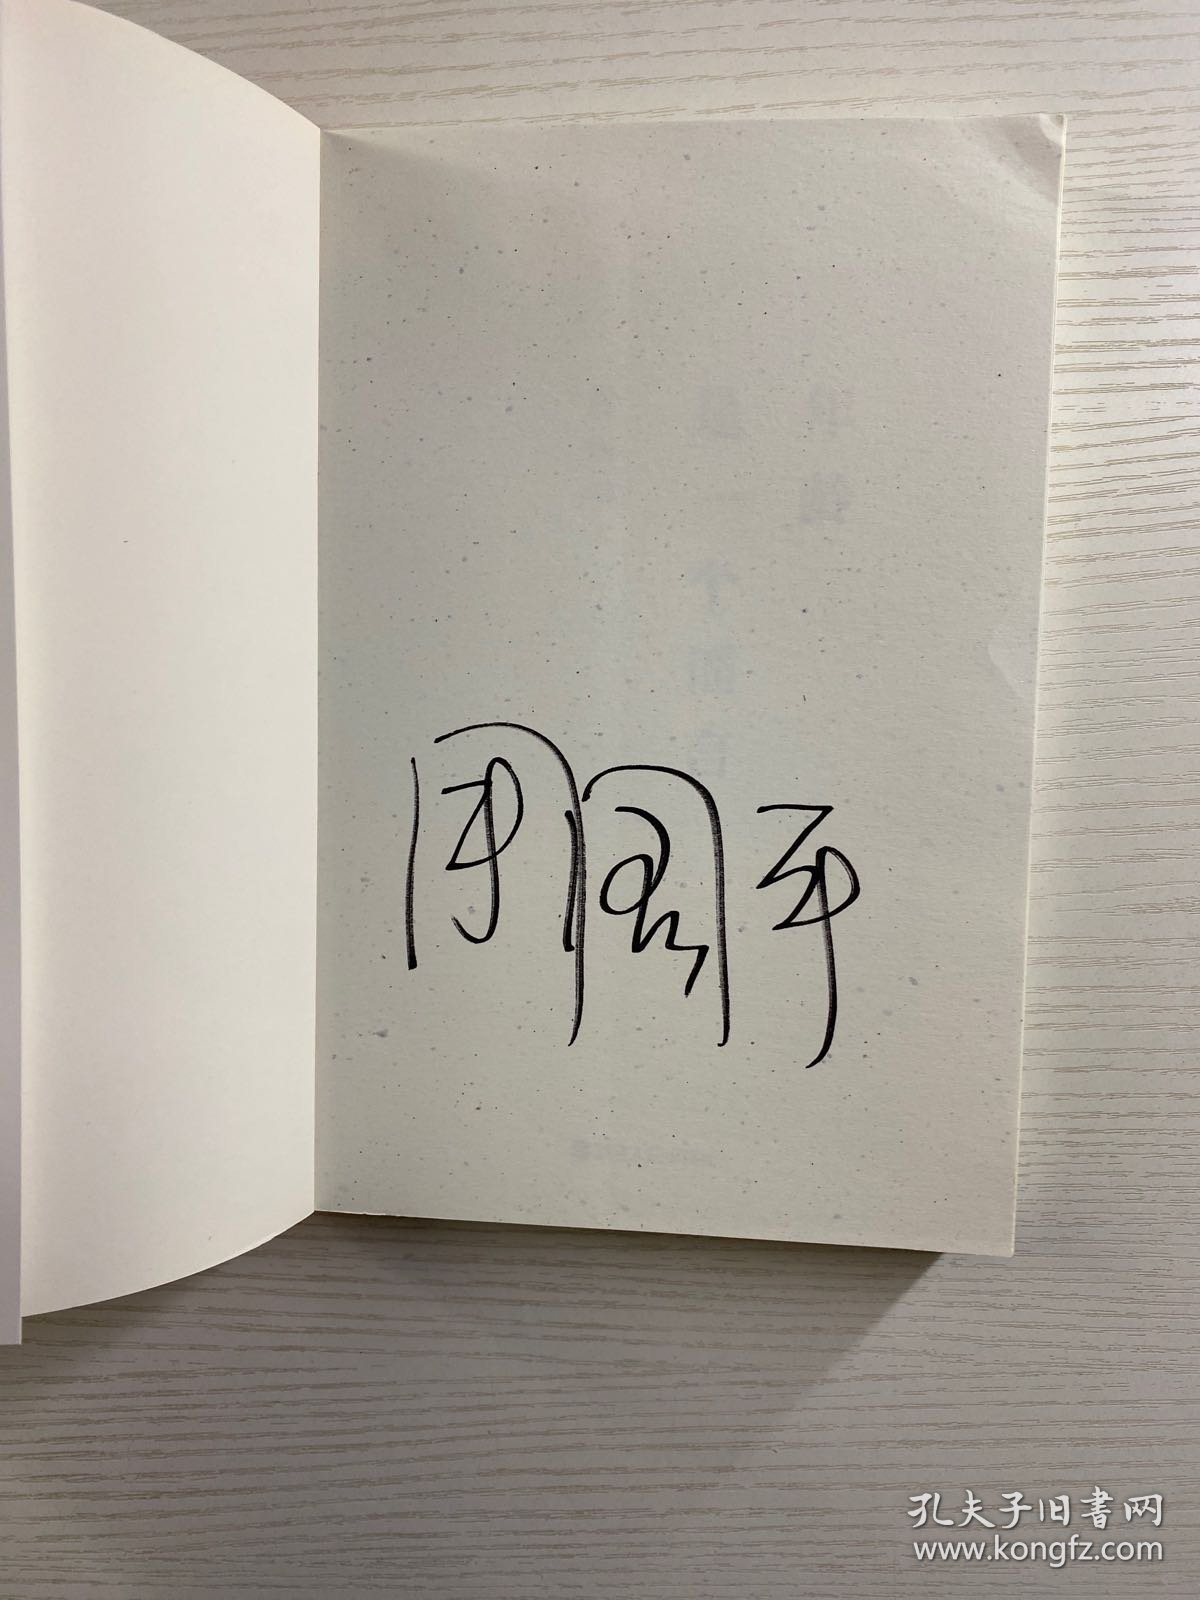 周国平
孔夫子旧书网
www.kongfz.com